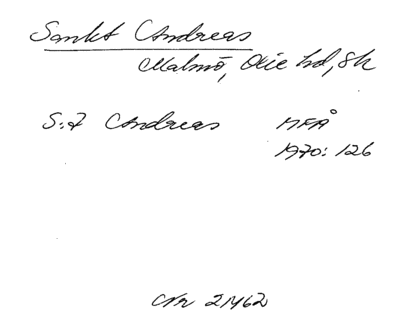 Sankt Andreas
Malmö, Oxie hd, Sk
S:t Andreas MFÅ
1970: 126